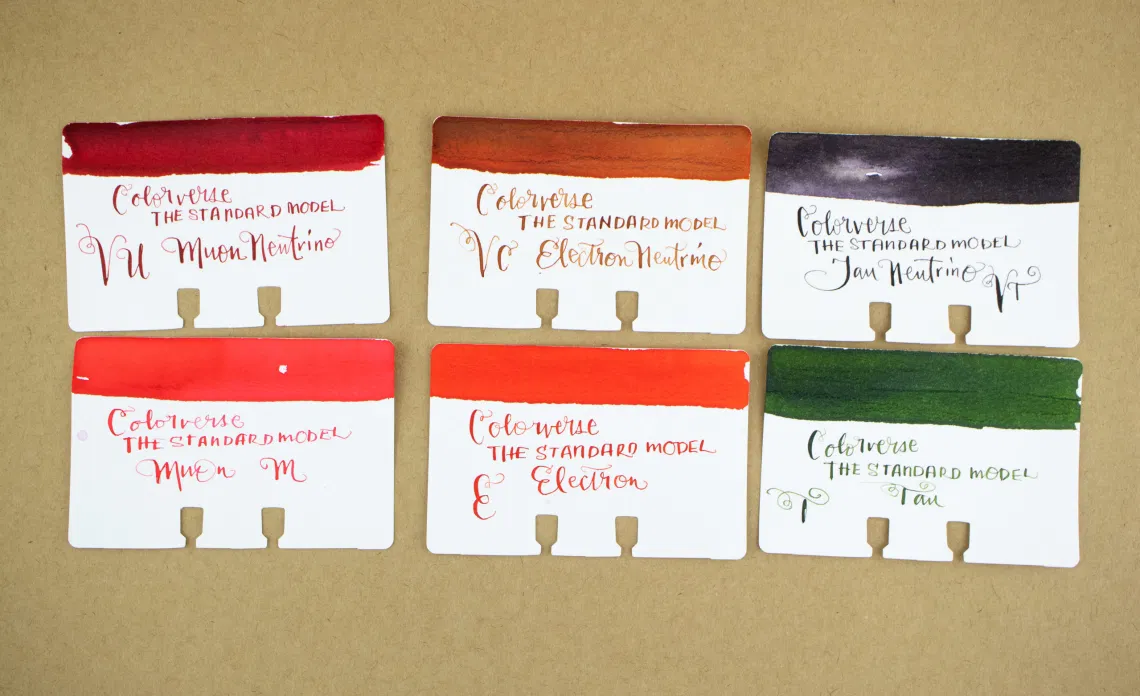 Colorverse
THE STANDARD MODEL
VU Muon Neutrino
Colorverse
THE STANDARD MODEL
Ve Electron Neutrino
Colorverse
THE STANDARD MODEL
Tau Neutrino VT
Colorverse
THE STANDARD MODEL
Muon M
Colorverse
THE STANDARD MODEL
E Electron
Colorverse
THE STANDARD MODEL
T Tau